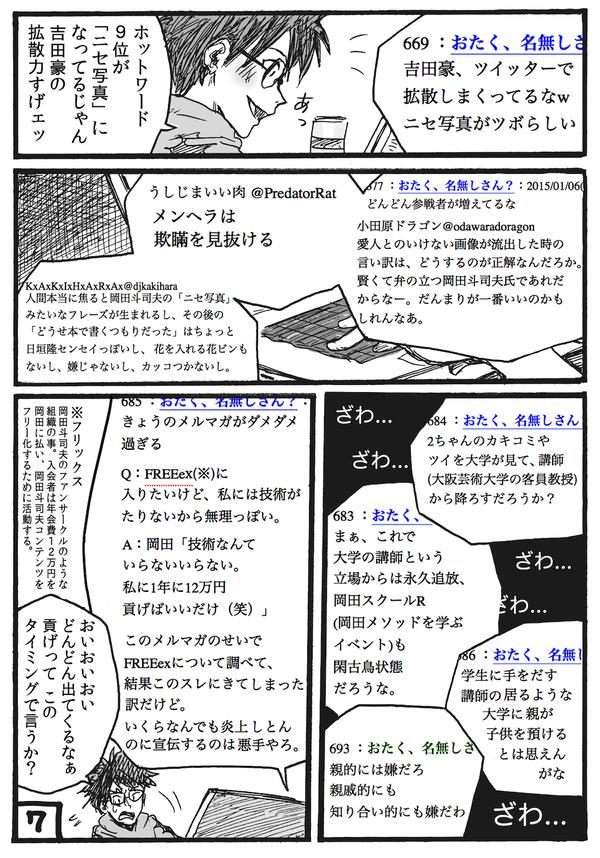 669 : おたく、名無しさ
吉田豪、ツイッターで
拡散しまくってるなw
ニセ写真がツボらしい
あっ
ホットワード
9位が
「ニセ写真」に
なってるじゃん
吉田豪の
拡散力すげェッ
677 : おたく、名無しさん? : 2015/01/06(
どんどん参戦者が増えてるな
小田原ドラゴン@odawaradoragon
愛人とのいけない画像が流出した時の
言い訳は、どうするのが正解なんだろか。
賢くて弁の立つ岡田斗司夫氏であれだ
からなー。だんまりが一番いいのかも
しれんなあ。
うしじまいい肉 @PredatorRat
メンヘラは
欺瞞を見抜ける
KxAxKxIxHxAxRxAx@djkakihara
人間本当に焦ると岡田斗司夫の「ニセ写真」
みたいなフレーズが生まれるし、その後の
「どうせ本で書くつもりだった」はちょっと
日垣隆センセイっぽいし、花を入れる花ビンも
ないし、嫌じゃないし、カッコつかないし。
684 : おたく、名無しさん
2ちゃんのカキコミや
ツイを大学が見て、講師
(大阪芸術大学の客員教授)
から降ろすだろうか?
ざわ…
ざわ…
683 : おたく、
まぁ、これで
大学の講師という
立場からは永久追放、
岡田スクールR
(岡田メソッドを学ぶ
イベント)も
閑古鳥状態
だろうな。
ざわ…
ざわ…
686 : おたく、名無し
学生に手をだす
講師の居るような
大学に親が
子供を預ける
とは思えん
がな
693 : おたく、名無しさ
親的には嫌だろ
親戚的にも
知り合い的にも嫌だわ
ざわ…
685 : おたく、名無しさん? :
きょうのメルマガがダメダメ
過ぎる
Q:FREEex(※)に
入りたいけど、私には技術が
たりないから無理っぽい。
A:岡田「技術なんて
いらないいらない。
私に1年に12万円
貢げばいいだけ(笑)」
このメルマガのせいで
FREEexについて調べて、
結果このスレにきてしまった
訳だけど。
いくらなんでも炎上しとん
のに宣伝するのは悪手やろ。
※フリックス
岡田斗司夫のファンサークルのような
組織の事。入会者は年会費12万円を
岡田に払い、岡田斗司夫コンテンツを
フリー化するために活動する。
おいおいおい
どんどん出てくるなぁ
貢げって この
タイミングで言うか?
7